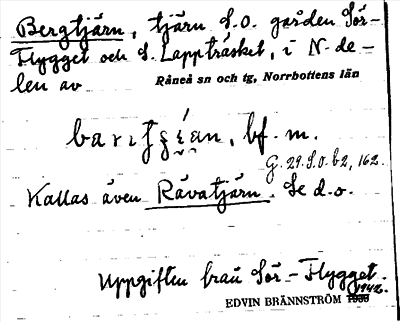 Bergtjärn, tjärn S.O. gården Sör-
Flygget och S. Lappträsket, i N. de-
len av Råneå sn och tg, Norrbottens län
bf. m.
G. 29. S.O. b2, 162.
Kallas även Råvatjärn. Se d.o.
Uppgiften från Sör-Flygget.
1942.
EDVIN BRÄNNSTRÖM 1939